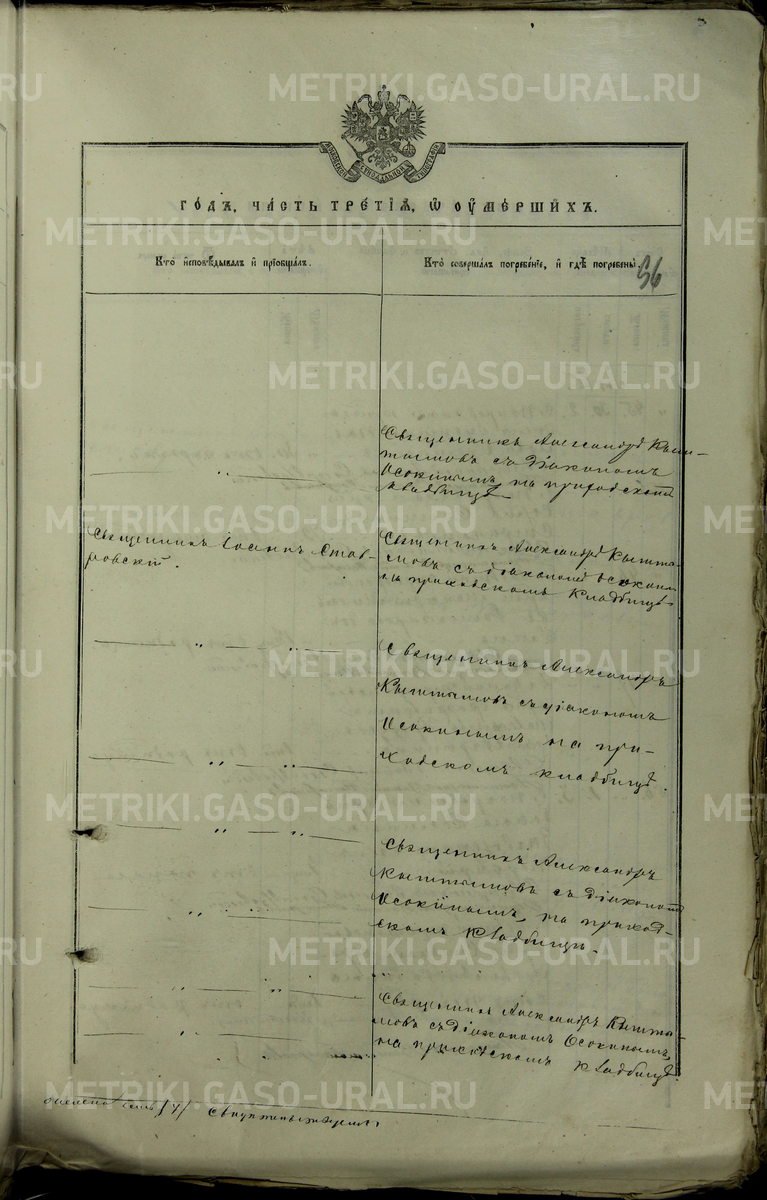 METRIKI.GASO-URAL.RU
МОСКОВСКОЙ СѴНОДАЛЬНОЙ ТИПОГРАФІИ
ГО́ДЪ, ЧА́СТЬ ТРЕ́ТІѦ, Ѡ ОУ҆МЕ́РШИХЪ.
Кто̀ и҆сповѣ́дывалъ и҆ прїобща́лъ.
Кто̀ соверша́лъ погребе́нїе, и҆ гдѣ̀ погребены̀.
56
Священникъ Александръ Кышты-
мовъ съ діакономъ
Осокинымъ на приходскомъ
кладбищѣ
Священникъ Іоаннъ Став-
ровскій.
Священникъ Александръ Кышты-
мовъ съ діакономъ Осокинымъ
на приходскомъ кладбищѣ
Священникъ Александръ
Кыштымовъ съ діакономъ
Осокинымъ на при-
ходскомъ кладбищѣ.
Священникъ Александръ
Кыштымовъ съ діакономъ
Осокинымъ, на приход-
скомъ кладбищѣ.
Священникъ Александръ Кышты-
мовъ съ діакономъ Осокинымъ,
на приходскомъ кладбищѣ.
семь (7)